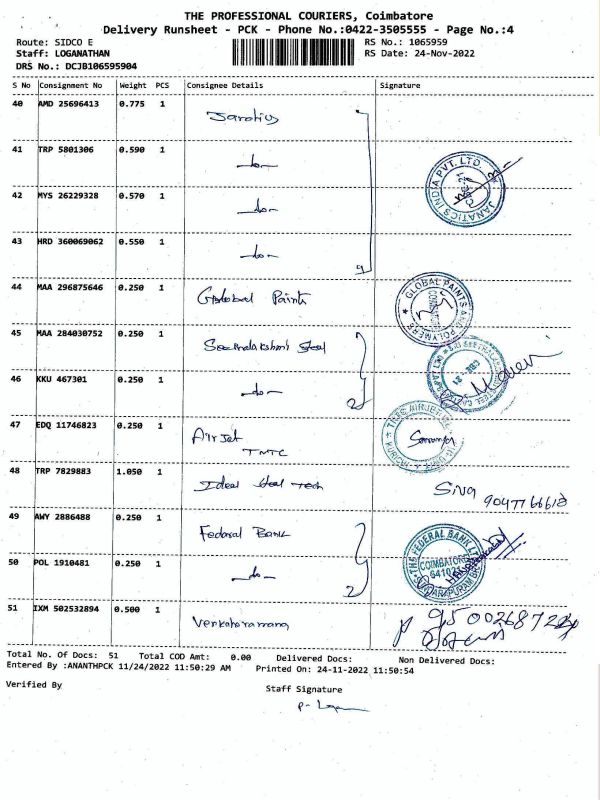 THE PROFESSIONAL COURIERS, Coimbatore
Delivery Runsheet - PCK - Phone No.:0422-3505555 - Page No.:4
Route: SIDCO E
RS No.: 1065959
Staff: LOGANATHAN
RS Date: 24-Nov-2022
DRS No.: DCJB106595904
S No Consignment No Weight PCS Consignee Details Signature
40 AMD 25696413 0.775 1
41 TRP 5801306 0.590 1 -do-
JANATICS INDIA PVT. LTD.
42 MYS 26229328 0.570 1 -do-
43 HRD 360069062 0.550 1 -do-
44 MAA 296875646 0.250 1 Global Paints
GLOBAL PAINTS AND POLYMERS
45 MAA 284030752 0.250 1 Seethalakshmi Steel
46 KKU 467301 0.250 1 -do-
2
47 EDQ 11746823 0.250 1 Airjet
TMTC
48 TRP 7829883 1.050 1 Ideal Steel Tech
Siva
49 AWY 2886488 0.250 1 Federal Bank
THE FEDERAL BANK LTD
COIMBATORE
50 POL 1910481 0.250 1 -do-
2
51 IXM 502532894 0.500 1 Venkataramana
Total No. Of Docs: 51 Total COD Amt: 0.00 Delivered Docs: Non Delivered Docs:
Entered By :ANANTHPCK 11/24/2022 11:50:29 AM Printed On: 24-11-2022 11:50:54
Verified By
Staff Signature